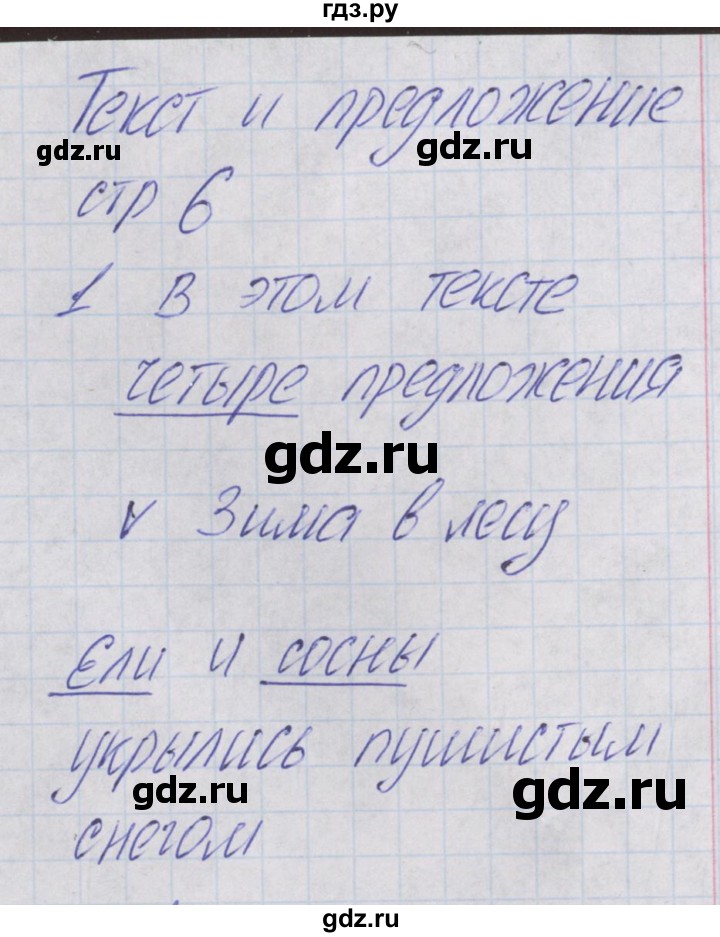 гдз.ру
Текст и предложение
gdz.ru
gdz.ru
стр 6
1 В этом тексте
четыре предложения
gdz.ru
v Зима в лесу
Ели и сосны
укрылись пушистым
gdz.ru
gdz.ru
снегом
gdz.ru